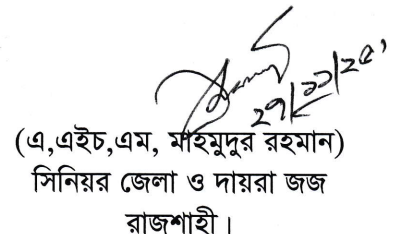 ২৭/১১/২৫'
(এ,এইচ,এম, মাহমুদুর রহমান)
সিনিয়র জেলা ও দায়রা জজ
রাজশাহী।